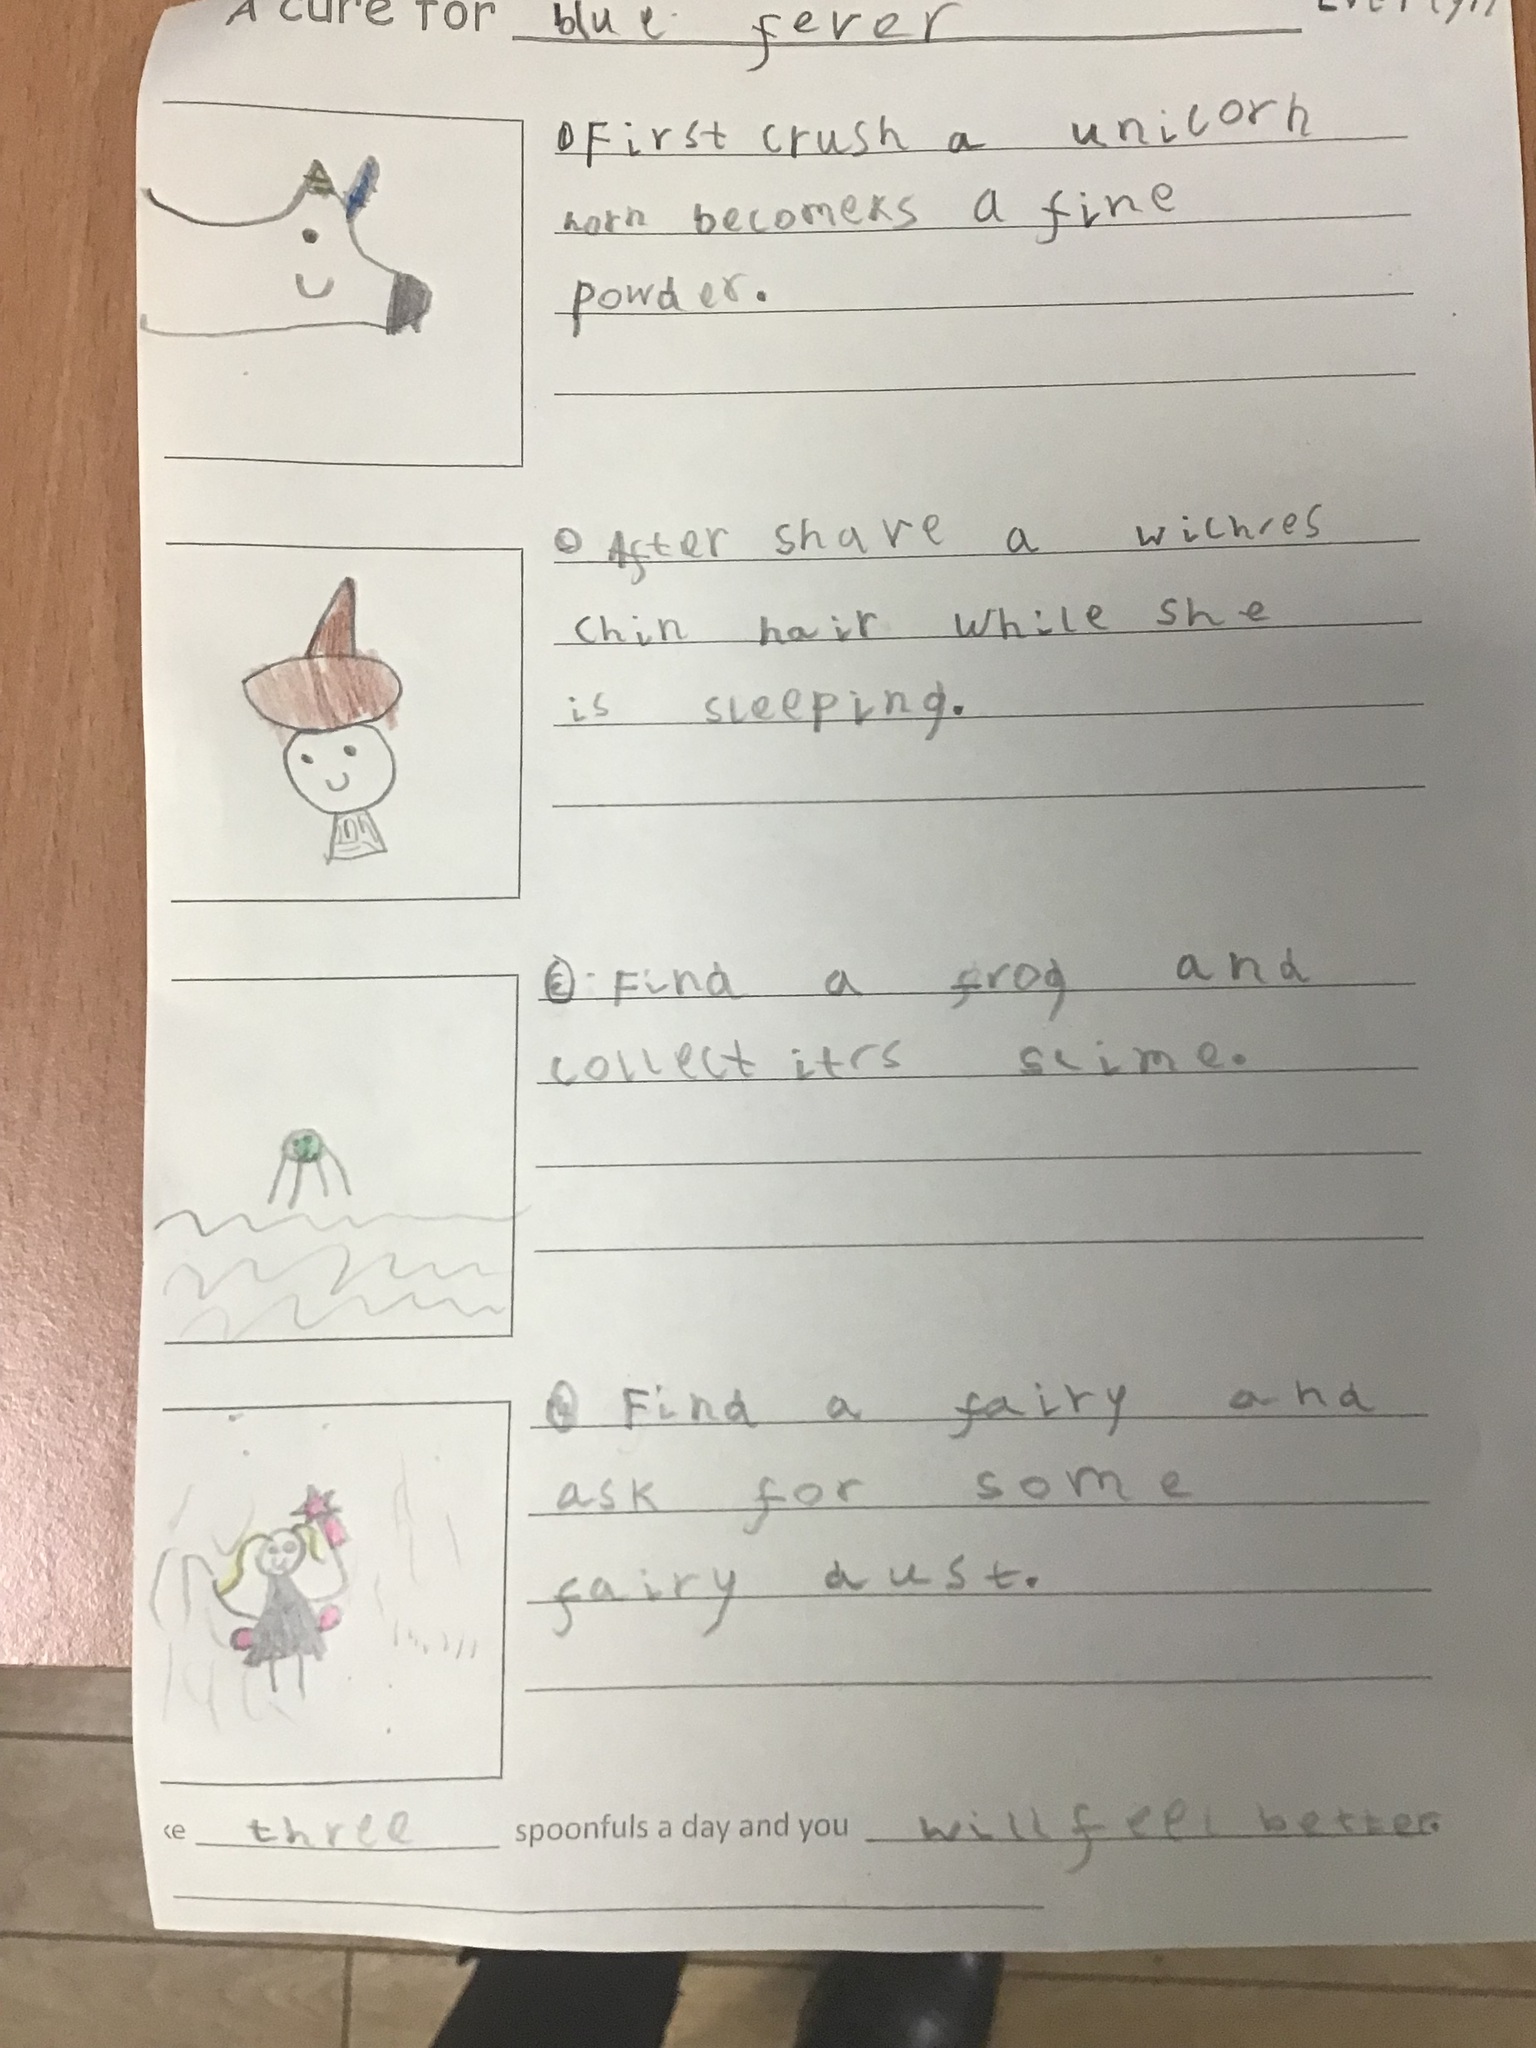 A cure for blue fever
First crush a unicorn
horn becomers a fine
powder.
After share a wichres
chin hair while she
is sleeping.
Find a frog and
collect itrs slime.
Find a fairy and
ask for some
fairy dust.
ke three spoonfuls a day and you will feel better.